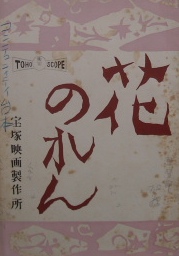 TOHO SCOPE
花
のれん
宝塚映画製作所